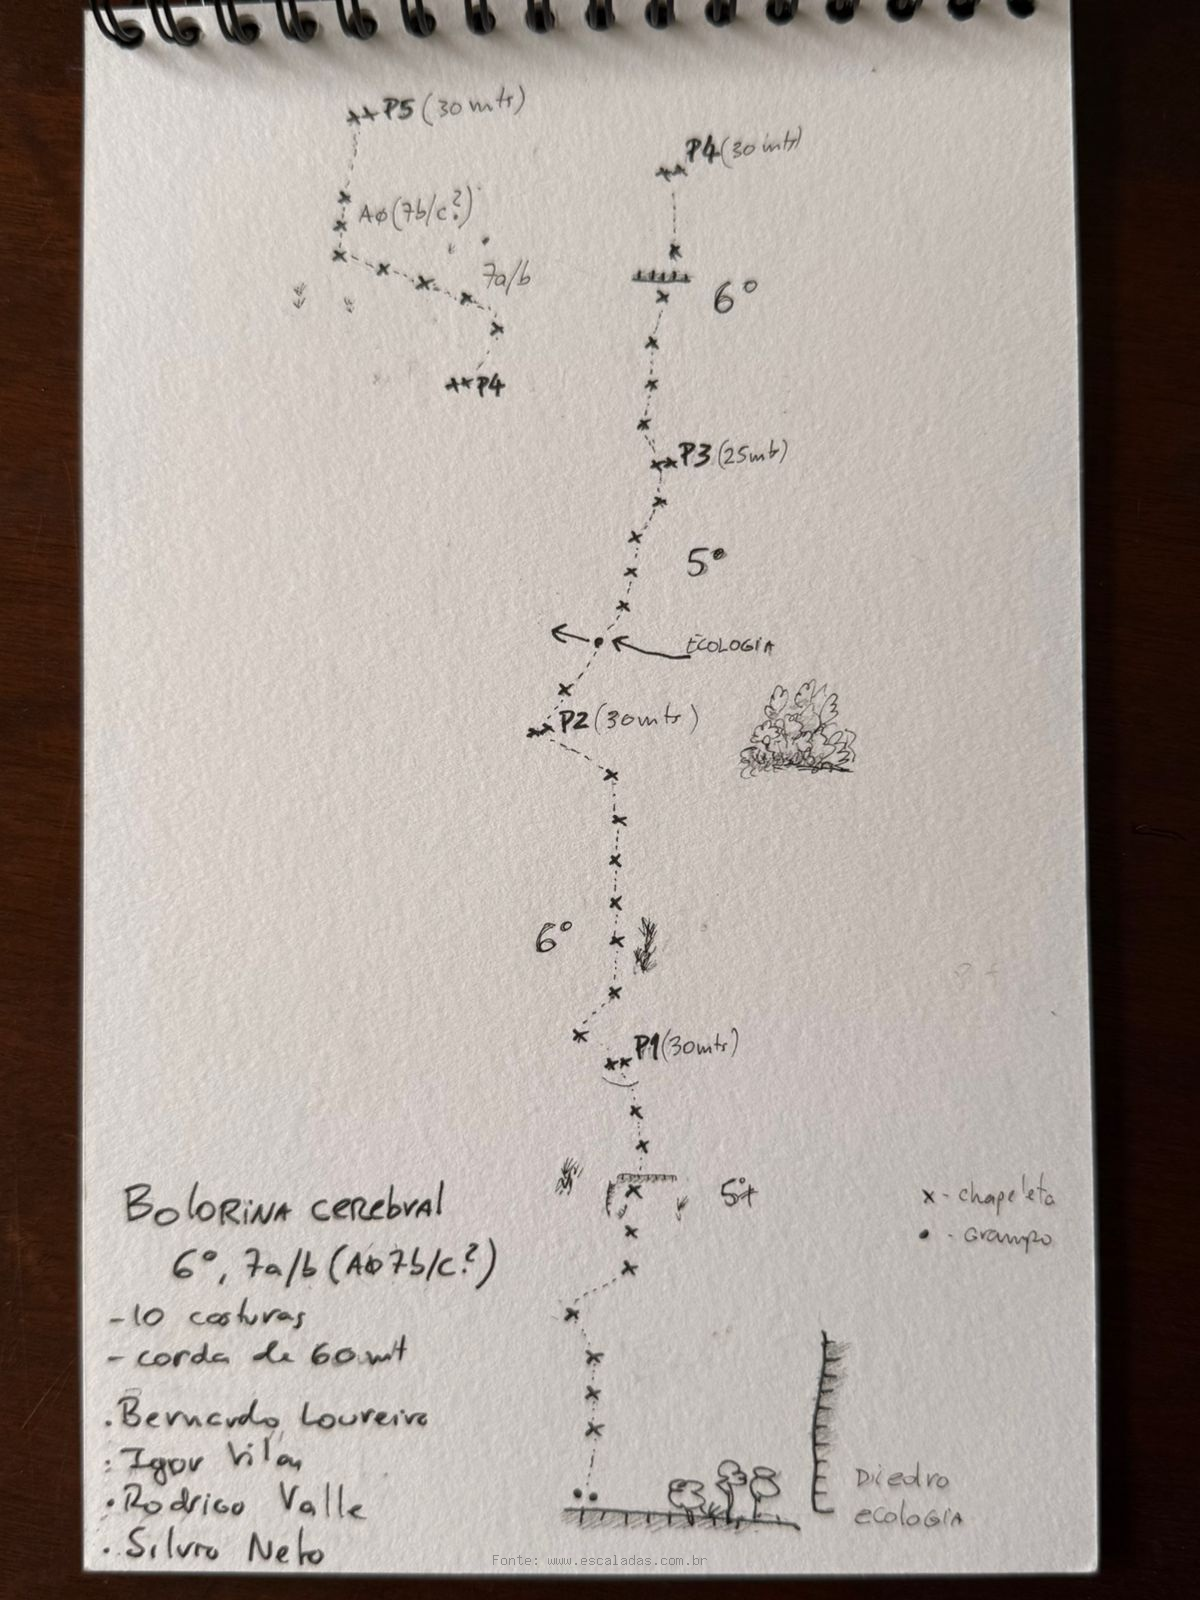 P5 (30 mts)
P4 (30 mts)
Aø (7b/c?)
7a/b
6°
P4
P3 (25mts)
5°
ECOLOGIA
P2 (30mts)
6°
P1 (30mts)
5°+
BOLORINA CEREBRAL
6°, 7a/b (Aø 7b/c?)
- 10 costuras
- corda de 60 mt
. Bernardo Loureiro
. Rodrigo Valle
. Silvio Neto
x - chapeleta
• - Grampo
Diedro
ecologia
Fonte: www.escaladas.com.br